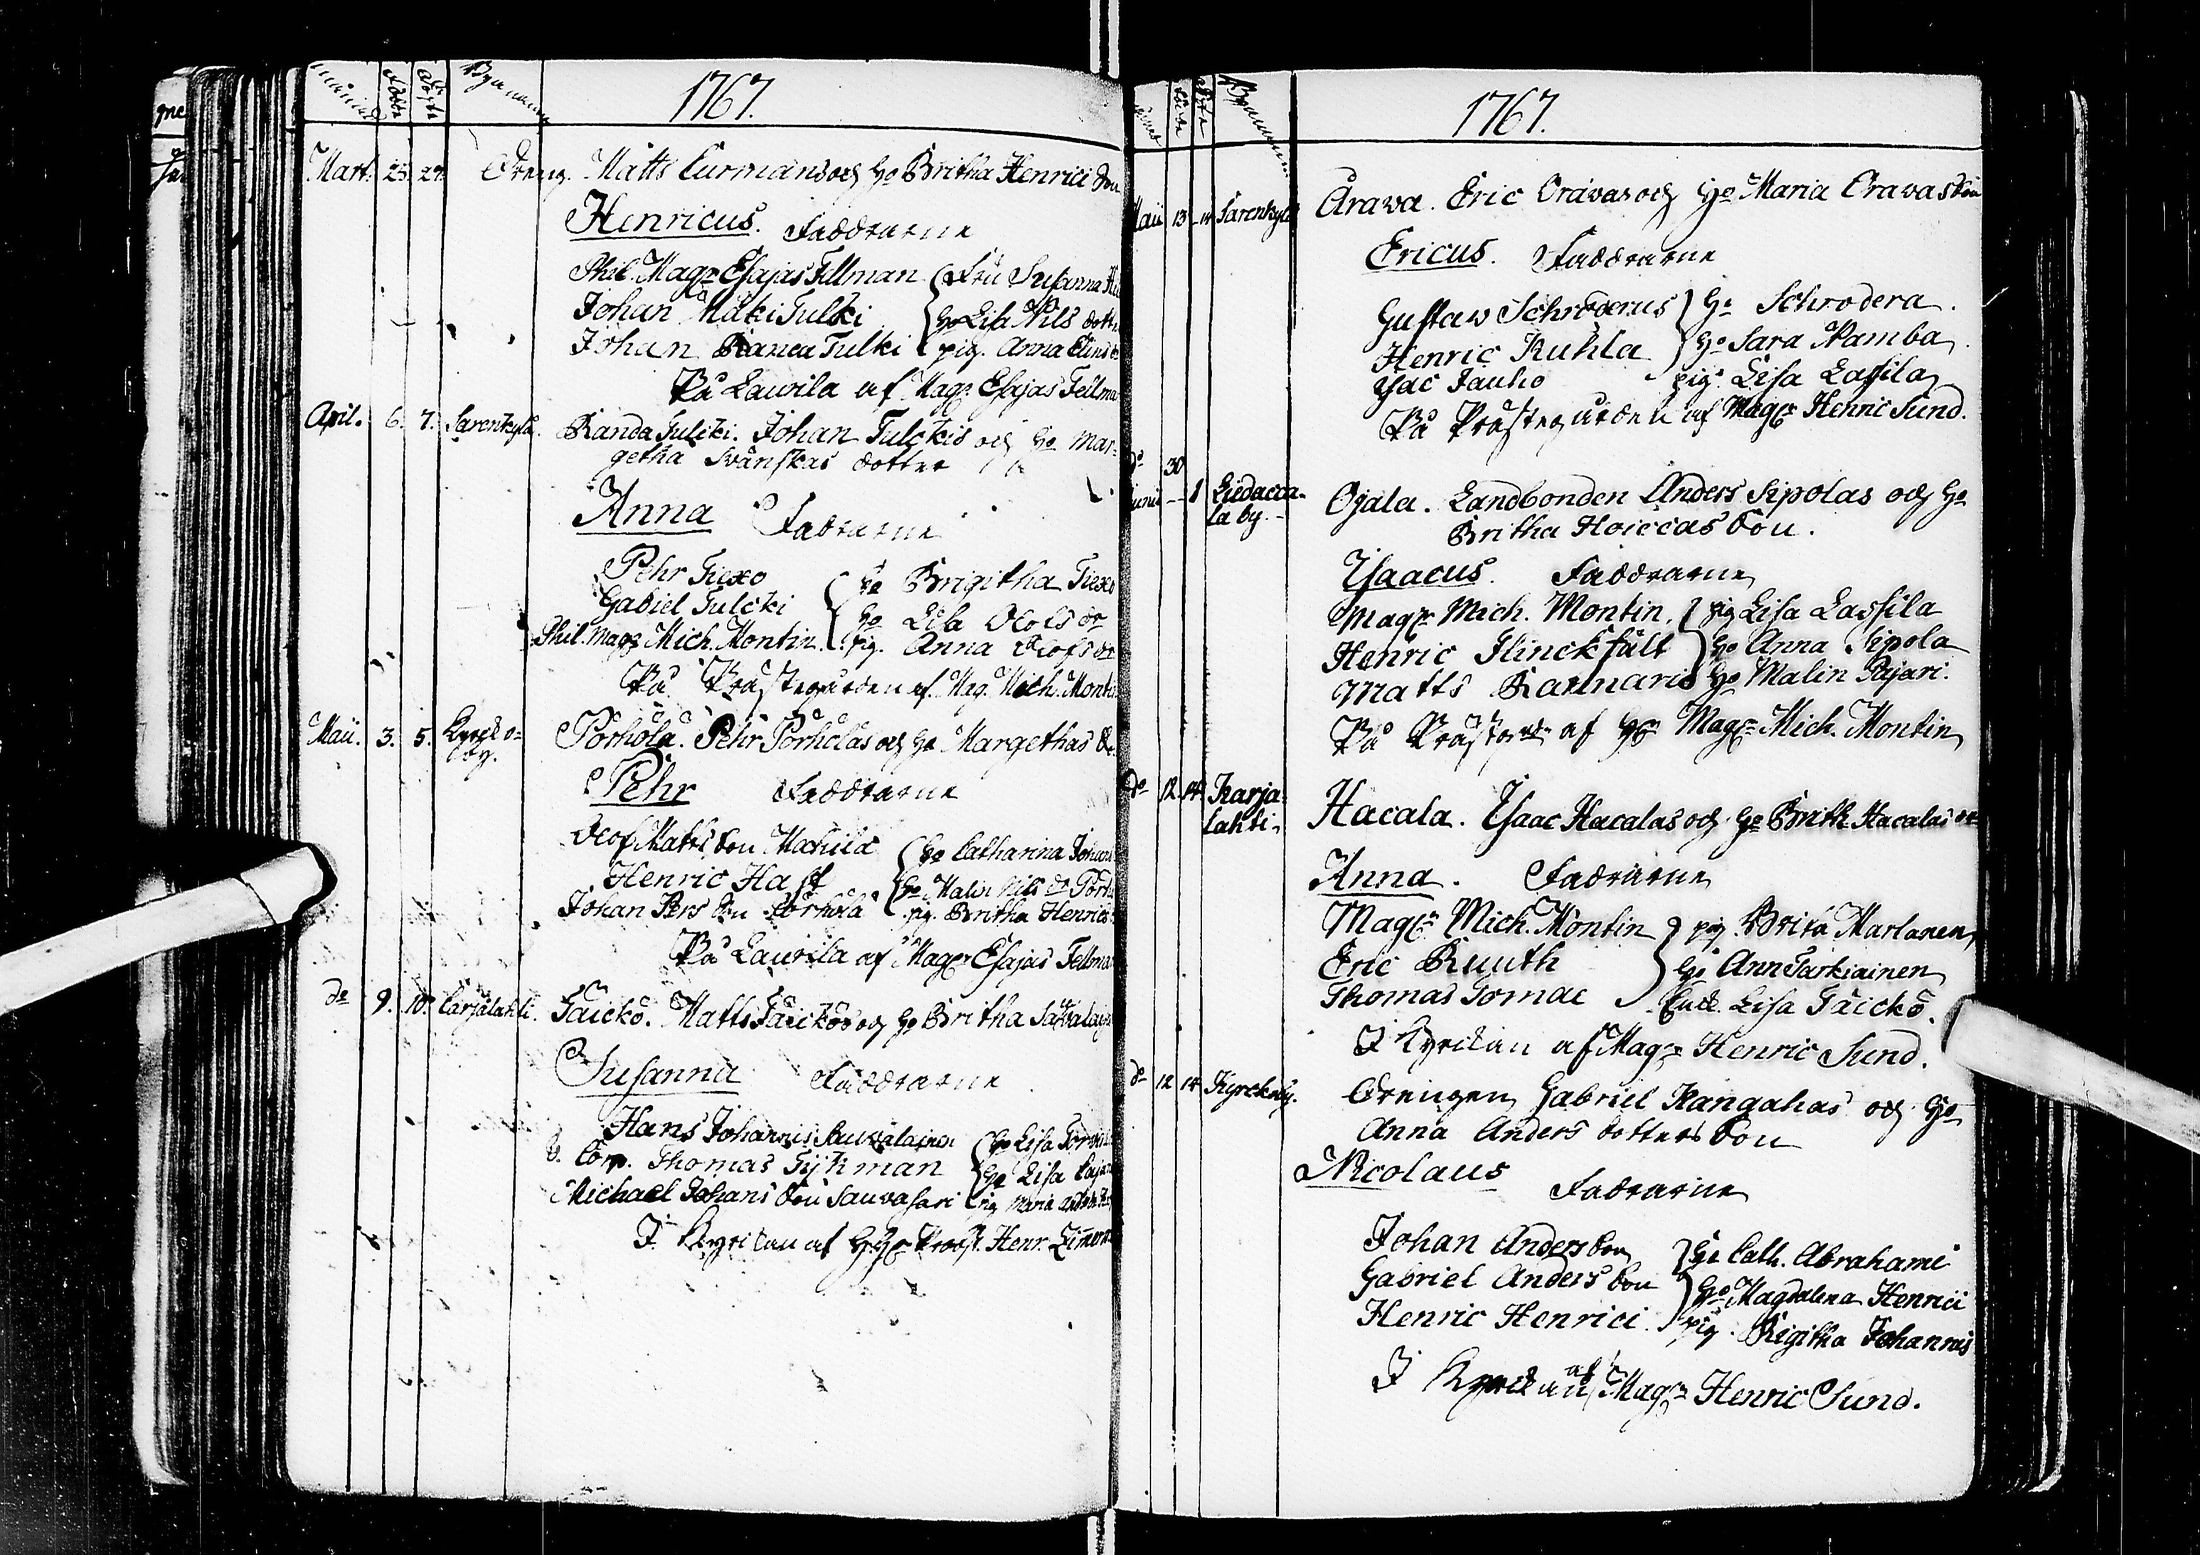 Månad Födde Döpte Byanamn 1767.
Mart. 25. 27. Dreng. Matts Curmans och Ho Britha Henrici Son
Henricus. Faddrarne
Phil. Magr Esajas Fellman Fru Susanna
Johan MäkiTulki Ho Lisa Nils dotter
Johan RancaTulki pig. Anna
På Laurila af Magr Esajas Fellman
April. 6. 7. Sarenkylä. RandaTulcki. Johan Tulckis och Ho Mar-
getha Svänskas dotter
Anna Faddrarne
Pehr Tiexo Ho Brigitha Tiexo
Gabiel Tulcki Ho Lisa Olofs dr
Phil. Magr Mich. Montin. pig. Anna Olofs dr
På Prästegården af Mag. Mich. Montin
Maii. 3. 5. Kyrcko-
by.
Pörhölä. Pehr Pörhöläs och Ho Margethas
Pehr Faddrarne
Olof Mattsson Ho Catharina Johans
Henric Hast Ho Malin Nils dr Pörh
Johan Persson Pörhölä pig. Britha Henrics
På Laurila af Magr Esajas Fellman
do 9. 10. Carjalahti. Täickö. Matts Täickös och Ho Britha
Susanna Faddrarne
Hans Johannis Sauvalainen Ho Lisa
Corp. Thomas Ho Lisa
Michael Johans Son Sauvasari pig Maria
I Kyrckan af Prost. Henr.
1767.
Maii 13 14 Sarenkylä Årava. Eric Oravas och Ho Maria Oravas Son
Ericus. Faddrarne
Gustaw Schroderus Ho Schrodera.
Henric Kuhla Ho Sara Namba
Isac Jauho pig. Lisa Lassila
På Prästegården af Magr Henric Sund.
do 30
Junii -- 1 Liedacca-
la by. Ojala. Landbonden Anders Sipolas och Ho
Britha Hoiccas Son.
Isaacus. Faddrarne
Magr Mich. Montin. pig Lisa Lassila
Henric Flinckfält Ho Anna Sipola
Matts Ho Malin Pajari.
På Prästgrdn af Magr Mich. Montin
do 12 14 Karja-
lahti. Hacala. Isaac Hacalas och Ho Brith Hacalas dr
Anna. Faddrarne
Magr Mich. Montin pig. Brita Martanen
Eric Ruuth Ho Ann Tarkiainen
Thomas Tornae Lisa Täickö.
I Kyrckan af Magr Henric Sund.
do 12 14 Kyrckoby. Drengen Gabriel Kangahas och Ho
Anna Anders dotters Son
Nicolaus Faddrarne
Johan Andersson Ho Cath. Abrahami
Gabriel Anders Son Ho Magdalena Henrici
Henric Henrici. pig. Rigitha Johannis
I Kyrckan af Magr Henric Sund.